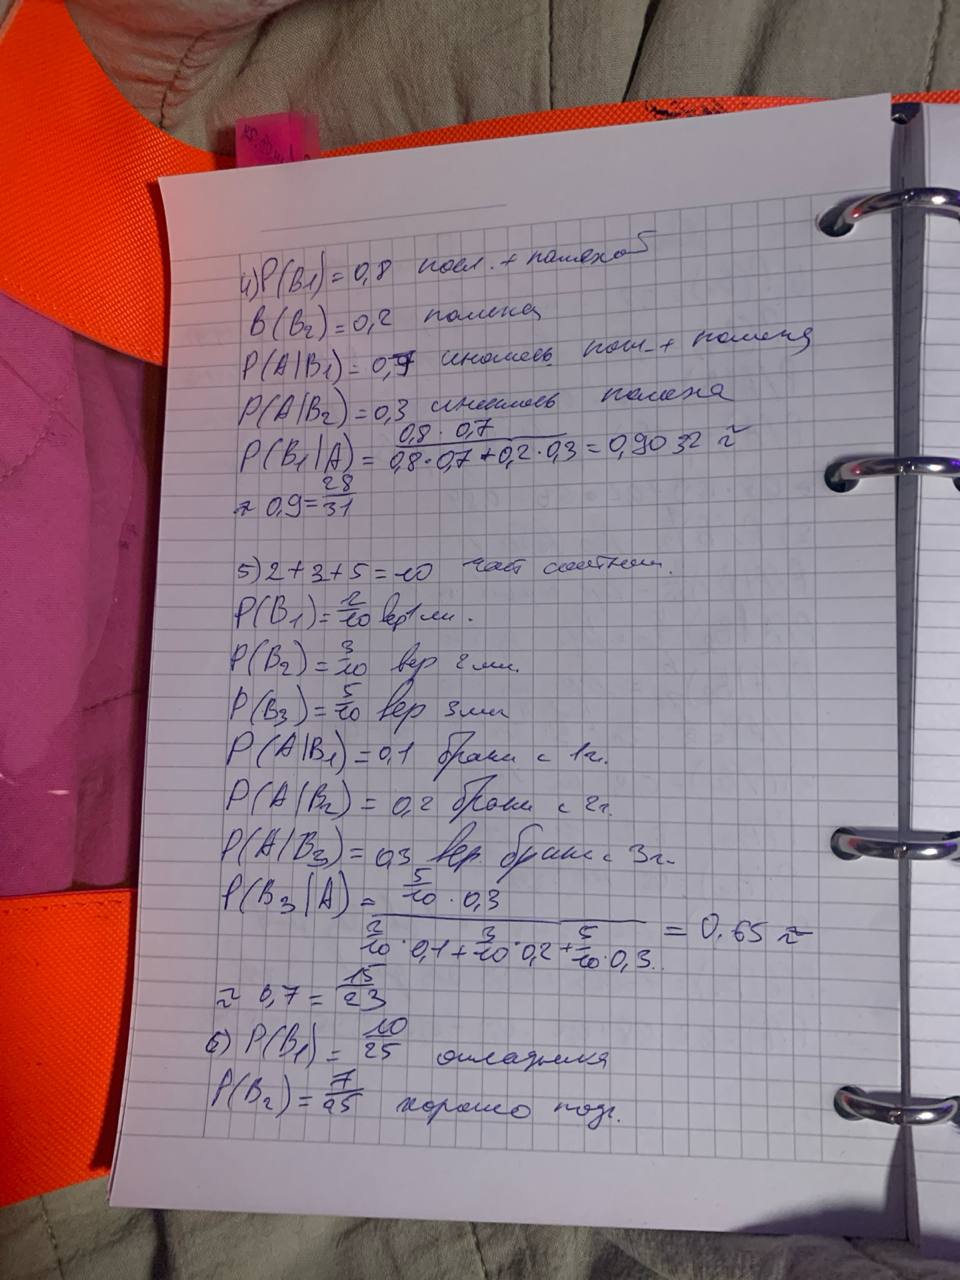 4) P(B1) = 0,8 посл. + помехой
B(B2) = 0,2 помеха
P(A|B1) = 0,7 помеха
P(A|B2) = 0,3 помеха
P(B1|A) = 0,8 · 0,7 / 0,8 · 0,7 + 0,2 · 0,3 = 0,9032 ≈
≈ 0,9 = 28/31
5) 2 + 3 + 5 = 10 част
P(B1) = 2/10 вер 1 ми.
P(B2) = 3/10 вер 2 ми.
P(B3) = 5/10 вер 3 ми
P(A|B1) = 0,1 брак с 1 г.
P(A|B2) = 0,2 брак с 2 г.
P(A|B3) = 0,3 вер брак с 3 г.
P(B3|A) = 5/10 · 0,3 / 2/10 · 0,1 + 3/10 · 0,2 + 5/10 · 0,3 = 0.65 ≈
≈ 0,7 = 15/23
6) P(B1) = 10/25
P(B2) = 7/25 хорошо подг.